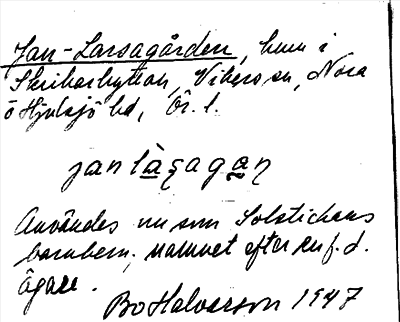 Jan-Larsagården, hmn i
Skrikarhyttan, Vikers sn, Nora
o Hjulsjö bd, Ör. l.
jan làṣagan̩
Användes nu som Solstickans
barnhem, namnet efter en f.d.
ägare.
Bo Halvarson 1947